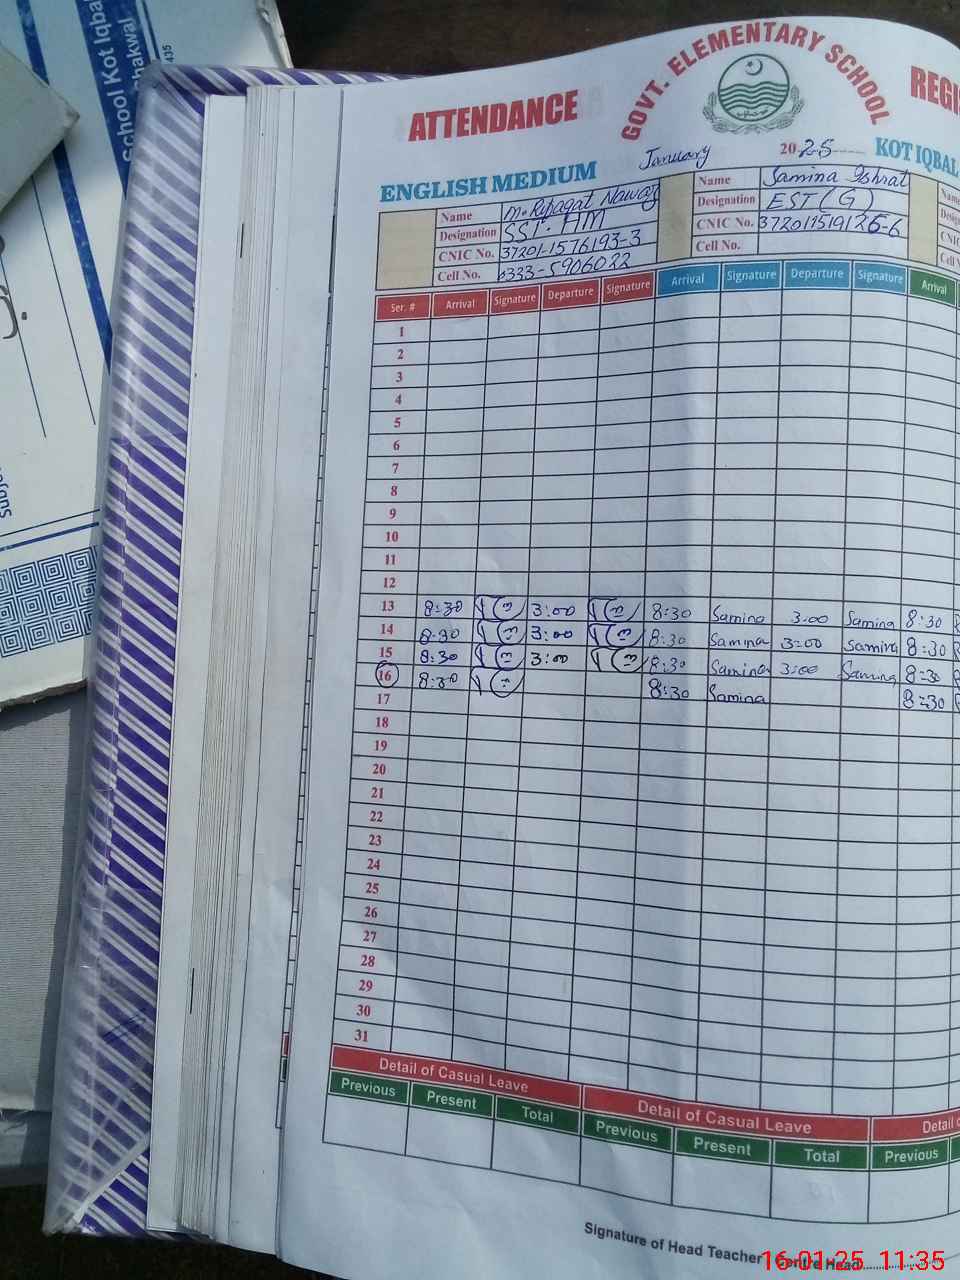 School Kot Iqba
Chakwal
435
GOVT. ELEMENTARY SCHOOL
ATTENDANCE
REGI
January 2025 KOT IQBAL
ENGLISH MEDIUM
Name M. Rifaqat Nawaz
Designation SST. HM
CNIC No. 37201-1576193-3
Cell No. 0333-5906022
Name Samina Ishrat
Designation EST (G)
CNIC No. 372011519126-6
Cell No.
Ser. # Arrival Signature Departure Signature Arrival Signature Departure Signature Arrival
1
2
3
4
5
6
7
8
9
10
11
12
13 8:30 3:00 8:30 Samina 3:00 Samina 8:30
14 8:30 3:00 8:30 Samina 3:00 Samina 8:30
15 8:30 3:00 8:30 Samina 3:00 Samina 8:30
16 8:30 8:30 Samina 8:30
17
18
19
20
21
22
23
24
25
26
27
28
29
30
31
Detail of Casual Leave Detail of Casual Leave Detail
Previous Present Total Previous Present Total Previous
Signature of Head Teacher Centre Head
16-01-25 11:35